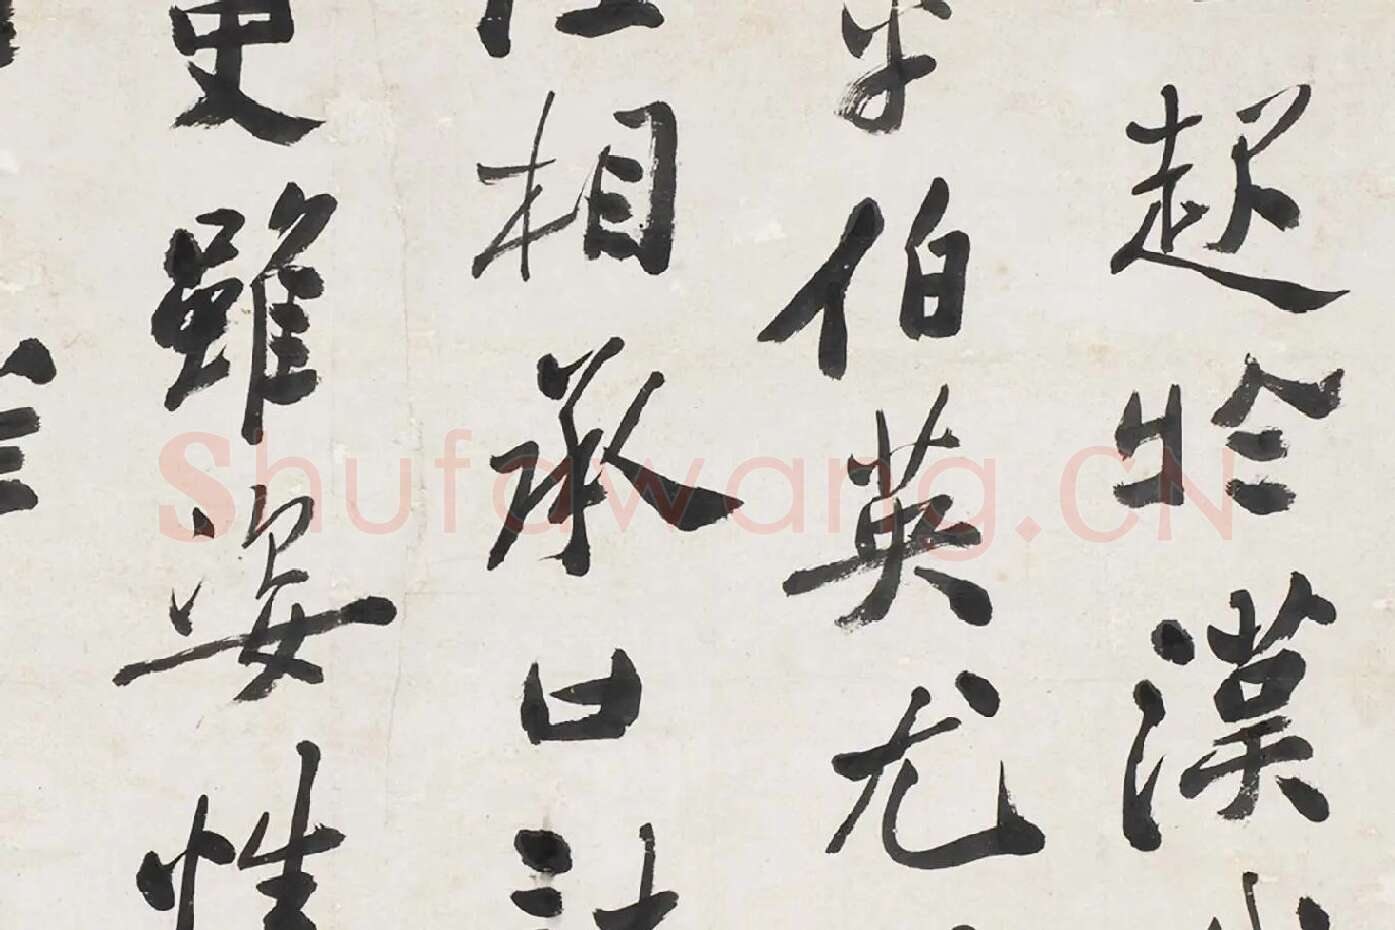 起於漢
平伯英尤
相承口
更雖姿性
Shufawang.CN